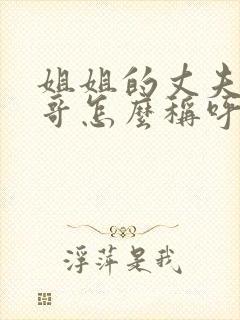 姐姐的丈夫
哥怎麼稱呼
浮萍是我